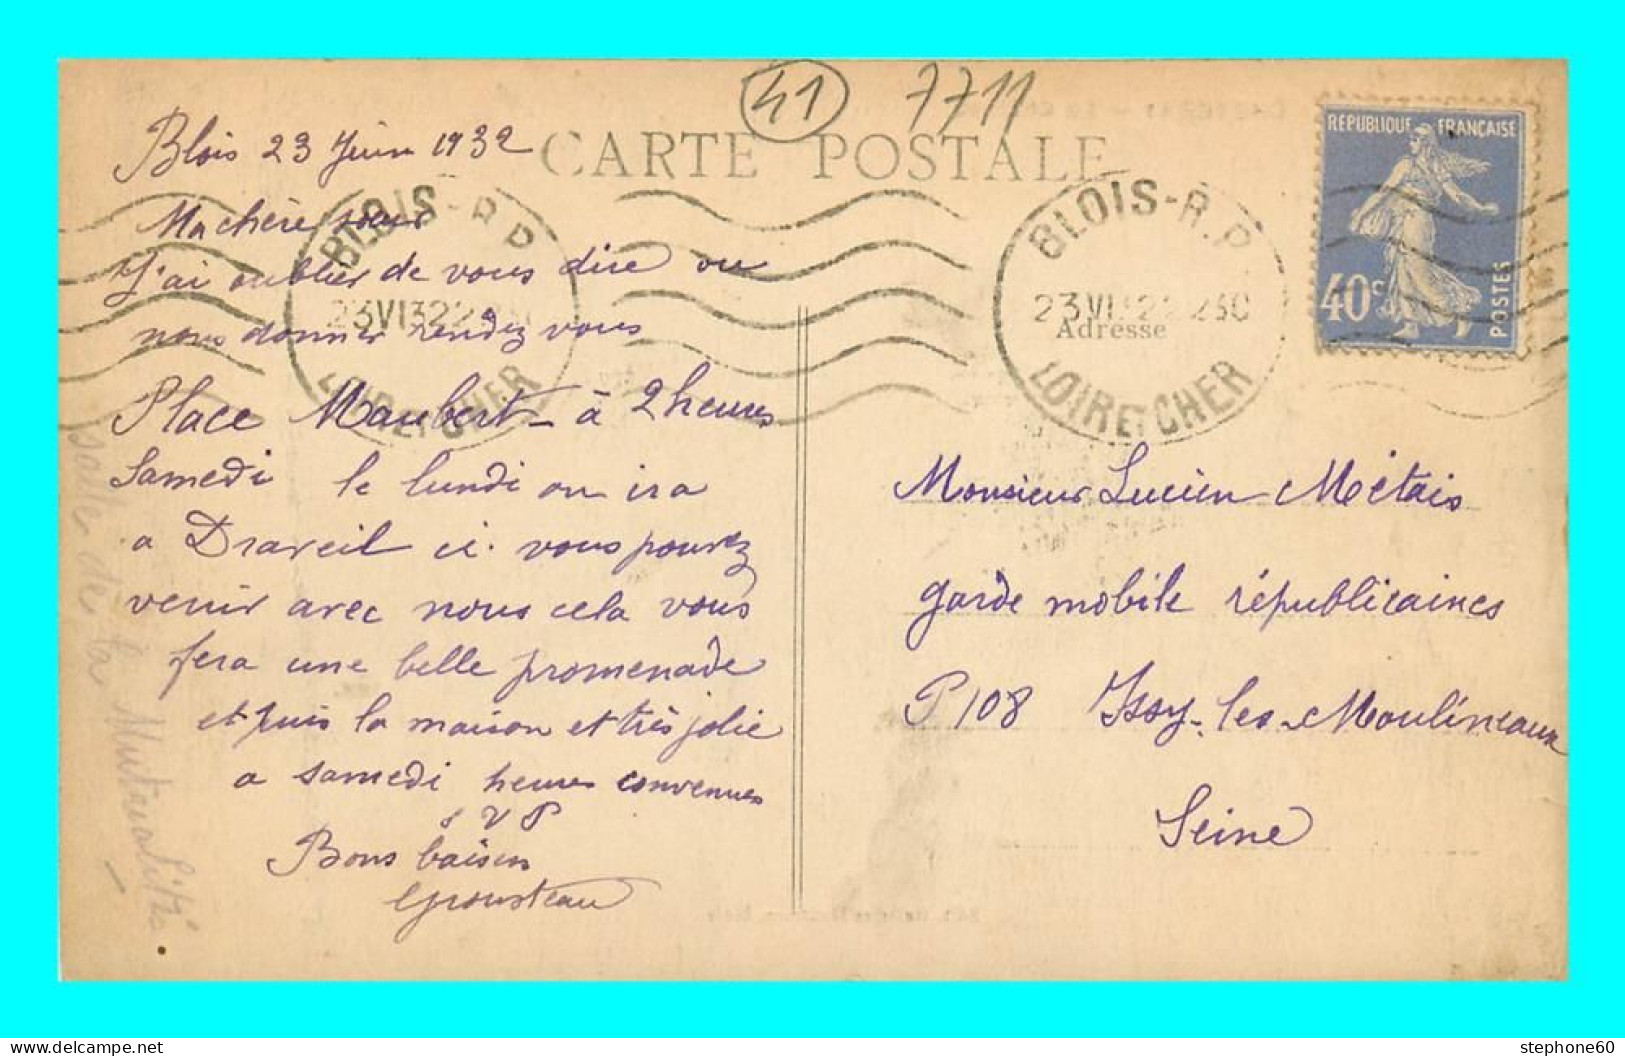 41 7711
CARTE POSTALE
Blois 23 Juin 1932
Ma chère sœur
J'ai oublier de vous dire ou
nous donner rendez vous
Place Maubert - à 2 heures
Samedi le lundi on ira
a Draveil si vous pouvez
venir avec nous cela vous
fera une belle promenade
et puis la maison et très jolie
a samedi heures convenues
S V P
Bons baisers
Grousteau
salle de la Mutualité
BLOIS - R.P
23 VI 32
LOIR-ET-CHER
BLOIS-R.P
23 VI 32 2230
LOIR-ET-CHER
Adresse
RÉPUBLIQUE FRANÇAISE
40c
POSTES
Monsieur Lucien Métais
garde mobile républicaines
P 108 Issy-les-Moulineaux
Seine
stephone60